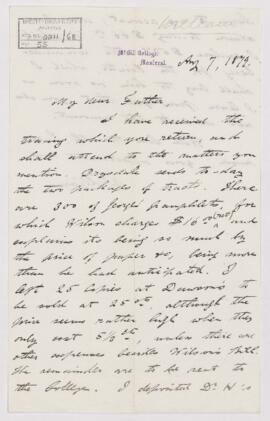 McGill College,
Montreal.
Aug 7, 1879.
My dear Father
I have received the
tracing which you return, and
shall attend to the matters you
mention. Drysdale sends to-day
the two packages of tracts. There
are 300 of George's pamphlets, for
which Wilson charges $16 and
explains its being so much by
the price of paper &c, being more
than he had anticipated. I
left 25 copies at Dawson's to
be sold at 25 cts, although the
price seems rather high when they
only cost 5½ cts, unless there are
other expenses besides Wilson's bill.
The remainder are to be sent to
the College. I deposited Dr H's